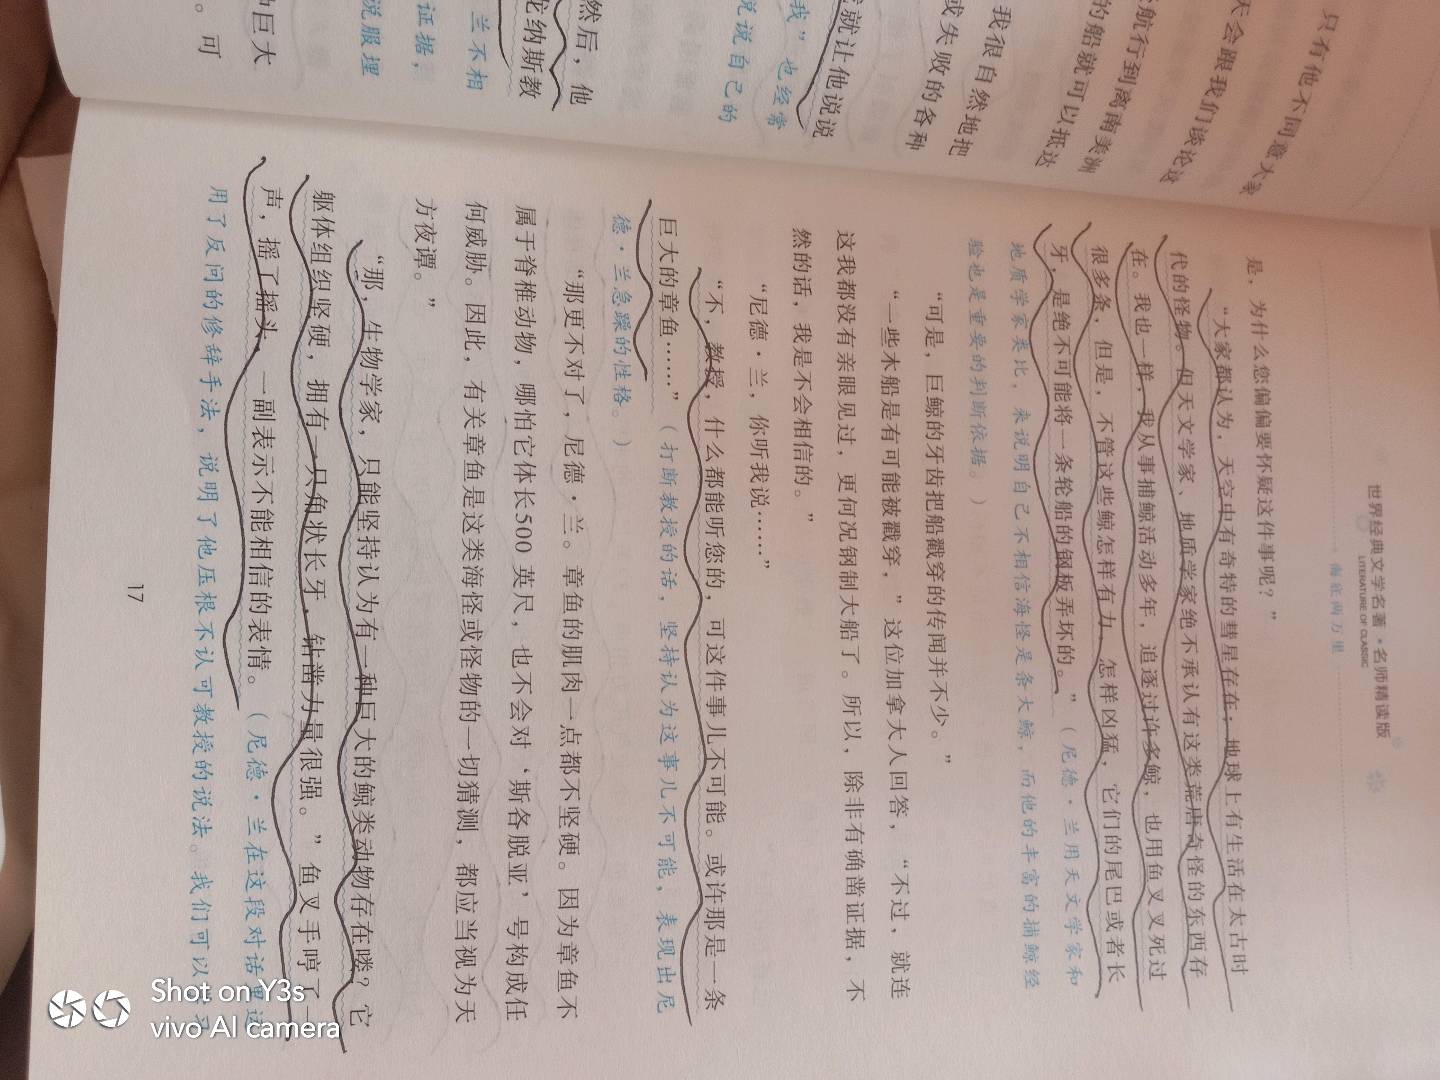 世界经典文学名著·名师精读版
LITERATURE OF CLASSIC
海底两万里
是，为什么您偏偏要怀疑这件事呢？”
“大家都认为，天空中有奇特的彗星存在；地球上有生活在太古时
代的怪物。但天文学家、地质学家绝不承认有这类荒唐奇怪的东西存
在。我也一样，我从事捕鲸活动多年，追逐过许多鲸，也用鱼叉叉死过
很多条，但是，不管这些鲸怎样有力、怎样凶猛，它们的尾巴或者长
牙，是绝不可能将一条轮船的钢板弄坏的。”（尼德·兰用天文学家和
地质学家类比，来说明自己不相信海怪是条大鲸，而他的丰富的捕鲸经
验也是重要的判断依据。）
“可是，巨鲸的牙齿把船戳穿的传闻并不少。”
“一些木船是有可能被戳穿，”这位加拿大人回答，“不过，就连
这我都没有亲眼见过，更何况钢制大船了。所以，除非有确凿证据，不
然的话，我是不会相信的。”
“尼德·兰，你听我说……”
“不，教授，什么都能听您的，可这件事儿不可能。或许那是一条
巨大的章鱼……”（打断教授的话，坚持认为这事儿不可能，表现出尼
德·兰急躁的性格。）
“那更不对了，尼德·兰。章鱼的肌肉一点都不坚硬。因为章鱼不
属于脊椎动物，哪怕它体长500 英尺，也不会对‘斯各脱亚’号构成任
何威胁。因此，有关章鱼是这类海怪或怪物的一切猜测，都应当视为天
方夜谭。”
“那，生物学家，只能坚持认为有一种巨大的鲸类动物存在喽？它
躯体组织坚硬，拥有一只角状长牙，钻凿力量很强。”鱼叉手哼了一
声，摇了摇头，一副表示不能相信的表情。（尼德·兰在这段对话里运
用了反问的修辞手法，说明了他压根不认可教授的说法。我们可以学习
17
只有他不同意大家
天会跟我们谈论这
航行到离南美洲
的船就可以抵达
我很自然地把
或失败的各种
就让他说说
我”也经常
说说自己的
然后，他
纳斯教
兰不相
证据，
说服埋
巨大
。可
Shot on Y3s
vivo AI camera